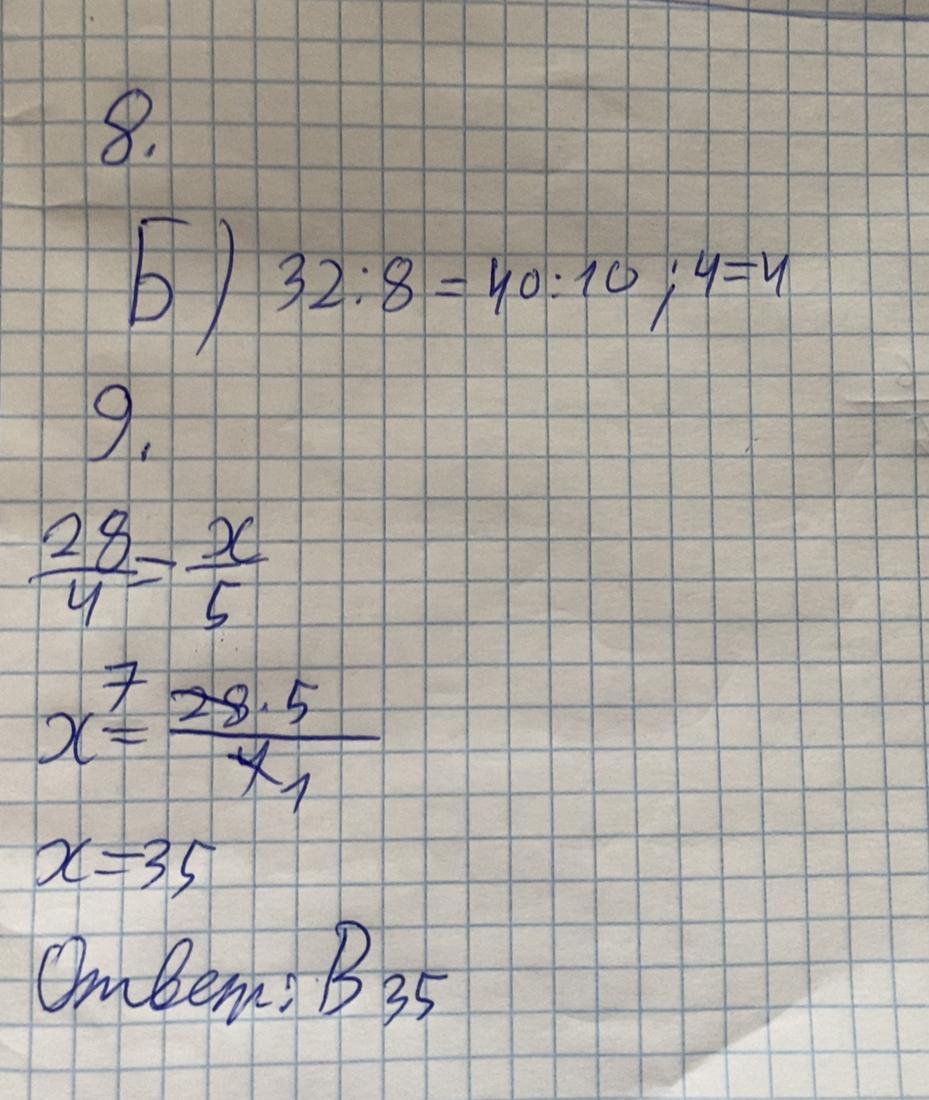 8.
Б) 32:8=40:10; 4=4
9.
28/4 = x/5
x = 28·5/4 7 1
x=35
Ответ: В 35